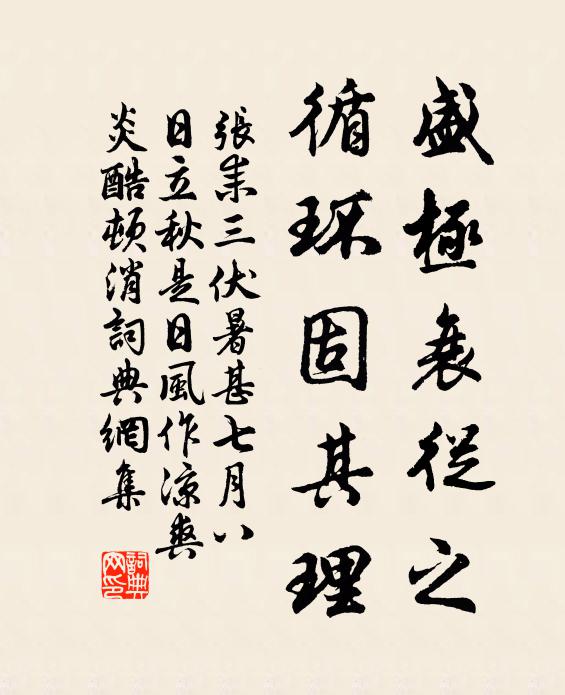 盛極衰從之
循环固其理
張耒三伏暑甚七月八
日立秋是日風作涼爽
炎酷頓消詞典網集
詞典网印